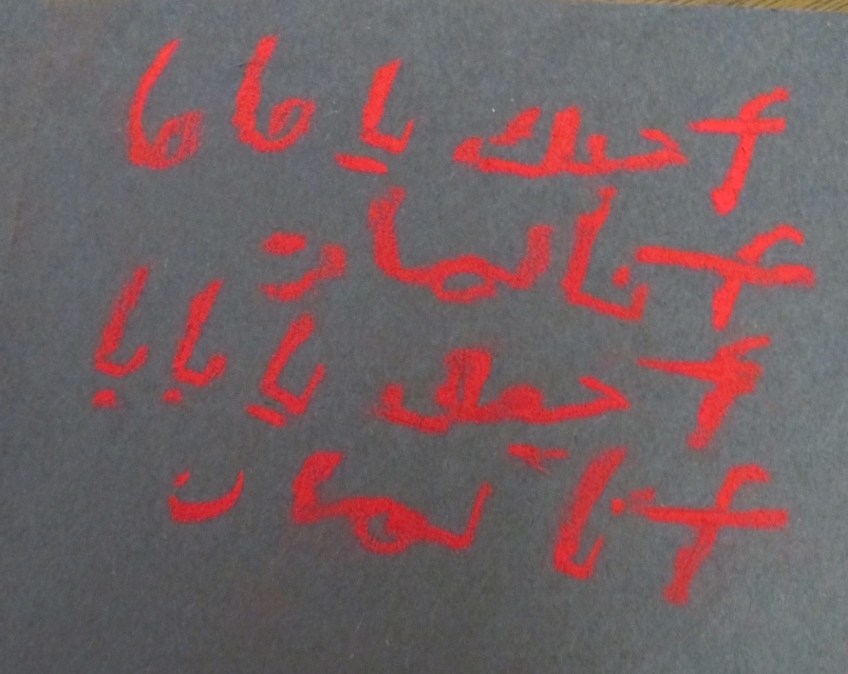 أحبك يا ماما
أنا لمارت
أحبك يا بابا
أنا لمارت